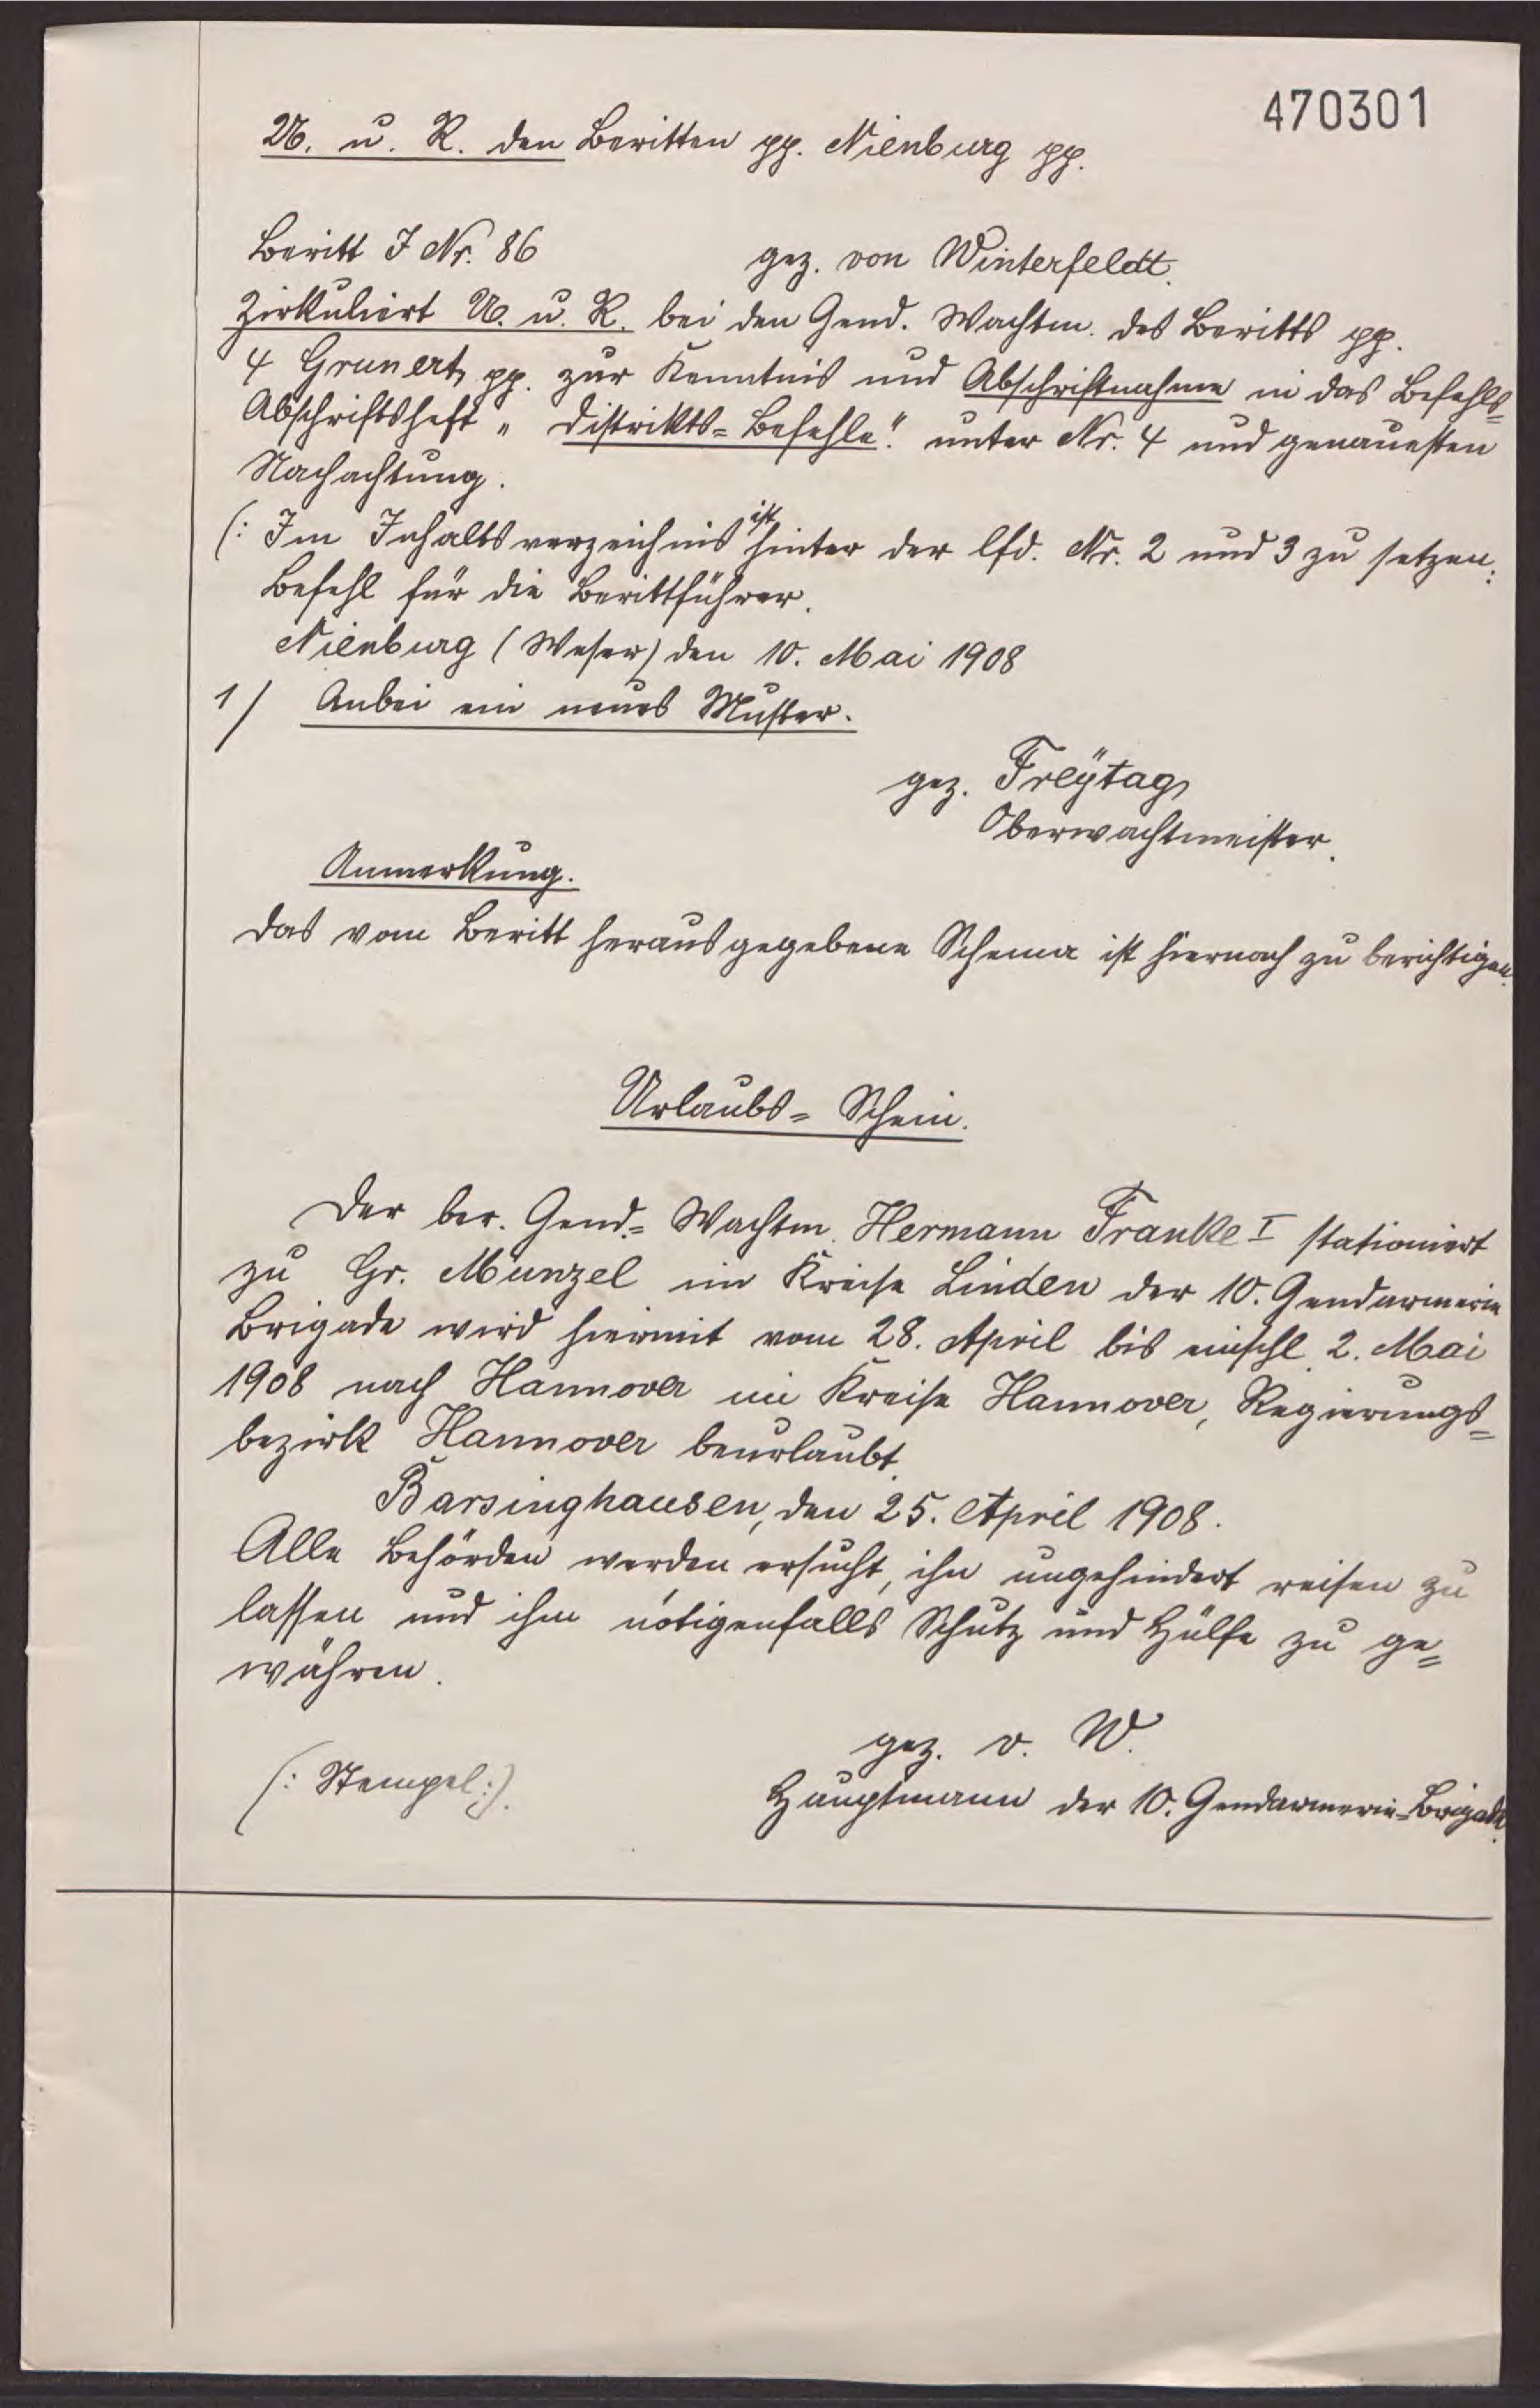 470301
U. u. R. den Beritten pp. Nienburg pp.
Beritt J Nr. 86 gez. von Winterfeldt.
Zirkuliert U. u. R. bei den Gend. Wachtm. des Beritts pp.
4 Grunert, pp. zur Kenntnis und Abschriftnahme in das Befehls=
Abschriftsheft „Distrikts=Befehle" unter Nr. 4 und genauesten
Nachachtung.
(: Im Inhaltsverzeichnis ist hinter der lfd. Nr. 2 und 3 zu setzen:
Befehl für die Berittführer.
Nienburg (Weser) den 10. Mai 1908
1/ Anbei ein neues Muster.
gez. Freÿtag,
Oberwachtmeister.
Anmerkung.
Das vom Beritt herausgegebene Schema ist hiernach zu berichtigen.
Urlaubs=Schein.
Der ber. Gend.=Wachtm. Hermann Franke I stationiert
zu Gr. Munzel im Kreise Linden der 10. Gendarmerie
Brigade wird hiermit vom 28. April bis einschl. 2. Mai
1908 nach Hannover im Kreise Hannover, Regierungs=
bezirk Hannover beurlaubt.
Barsinghausen, den 25. April 1908.
Alle Behörden werden ersucht, ihn ungehindert reisen zu
lassen und ihm nötigenfalls Schutz und Hülfe zu ge=
währen.
gez. v. W.
(: Stempel :). Hauptmann der 10. Gendarmerie=Brigade.